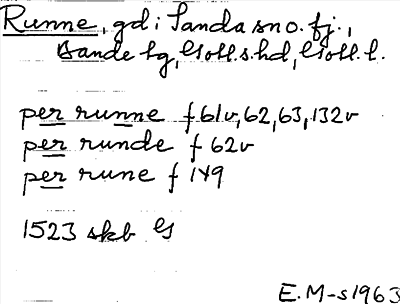 Runne, gd i Sanda sno. fj.,
Bande hg, Gotl. s. hd, Gotl. l.
per runne f 61v, 62, 63, 132v
per runde f 62v
per rune f 149
1523 skb
E. M-s 1963